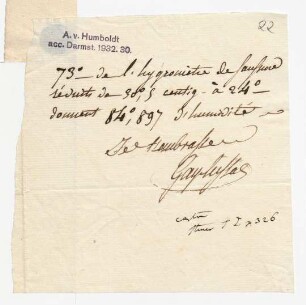 22
A. v. Humboldt
acc. Darmst. 1932. 30.
73° de l'hygromètre de Saussure
réduits de 38°,5 centig. à 24°
donnent 84°,897 d'humidité
Gay-Lussac
t I p 326